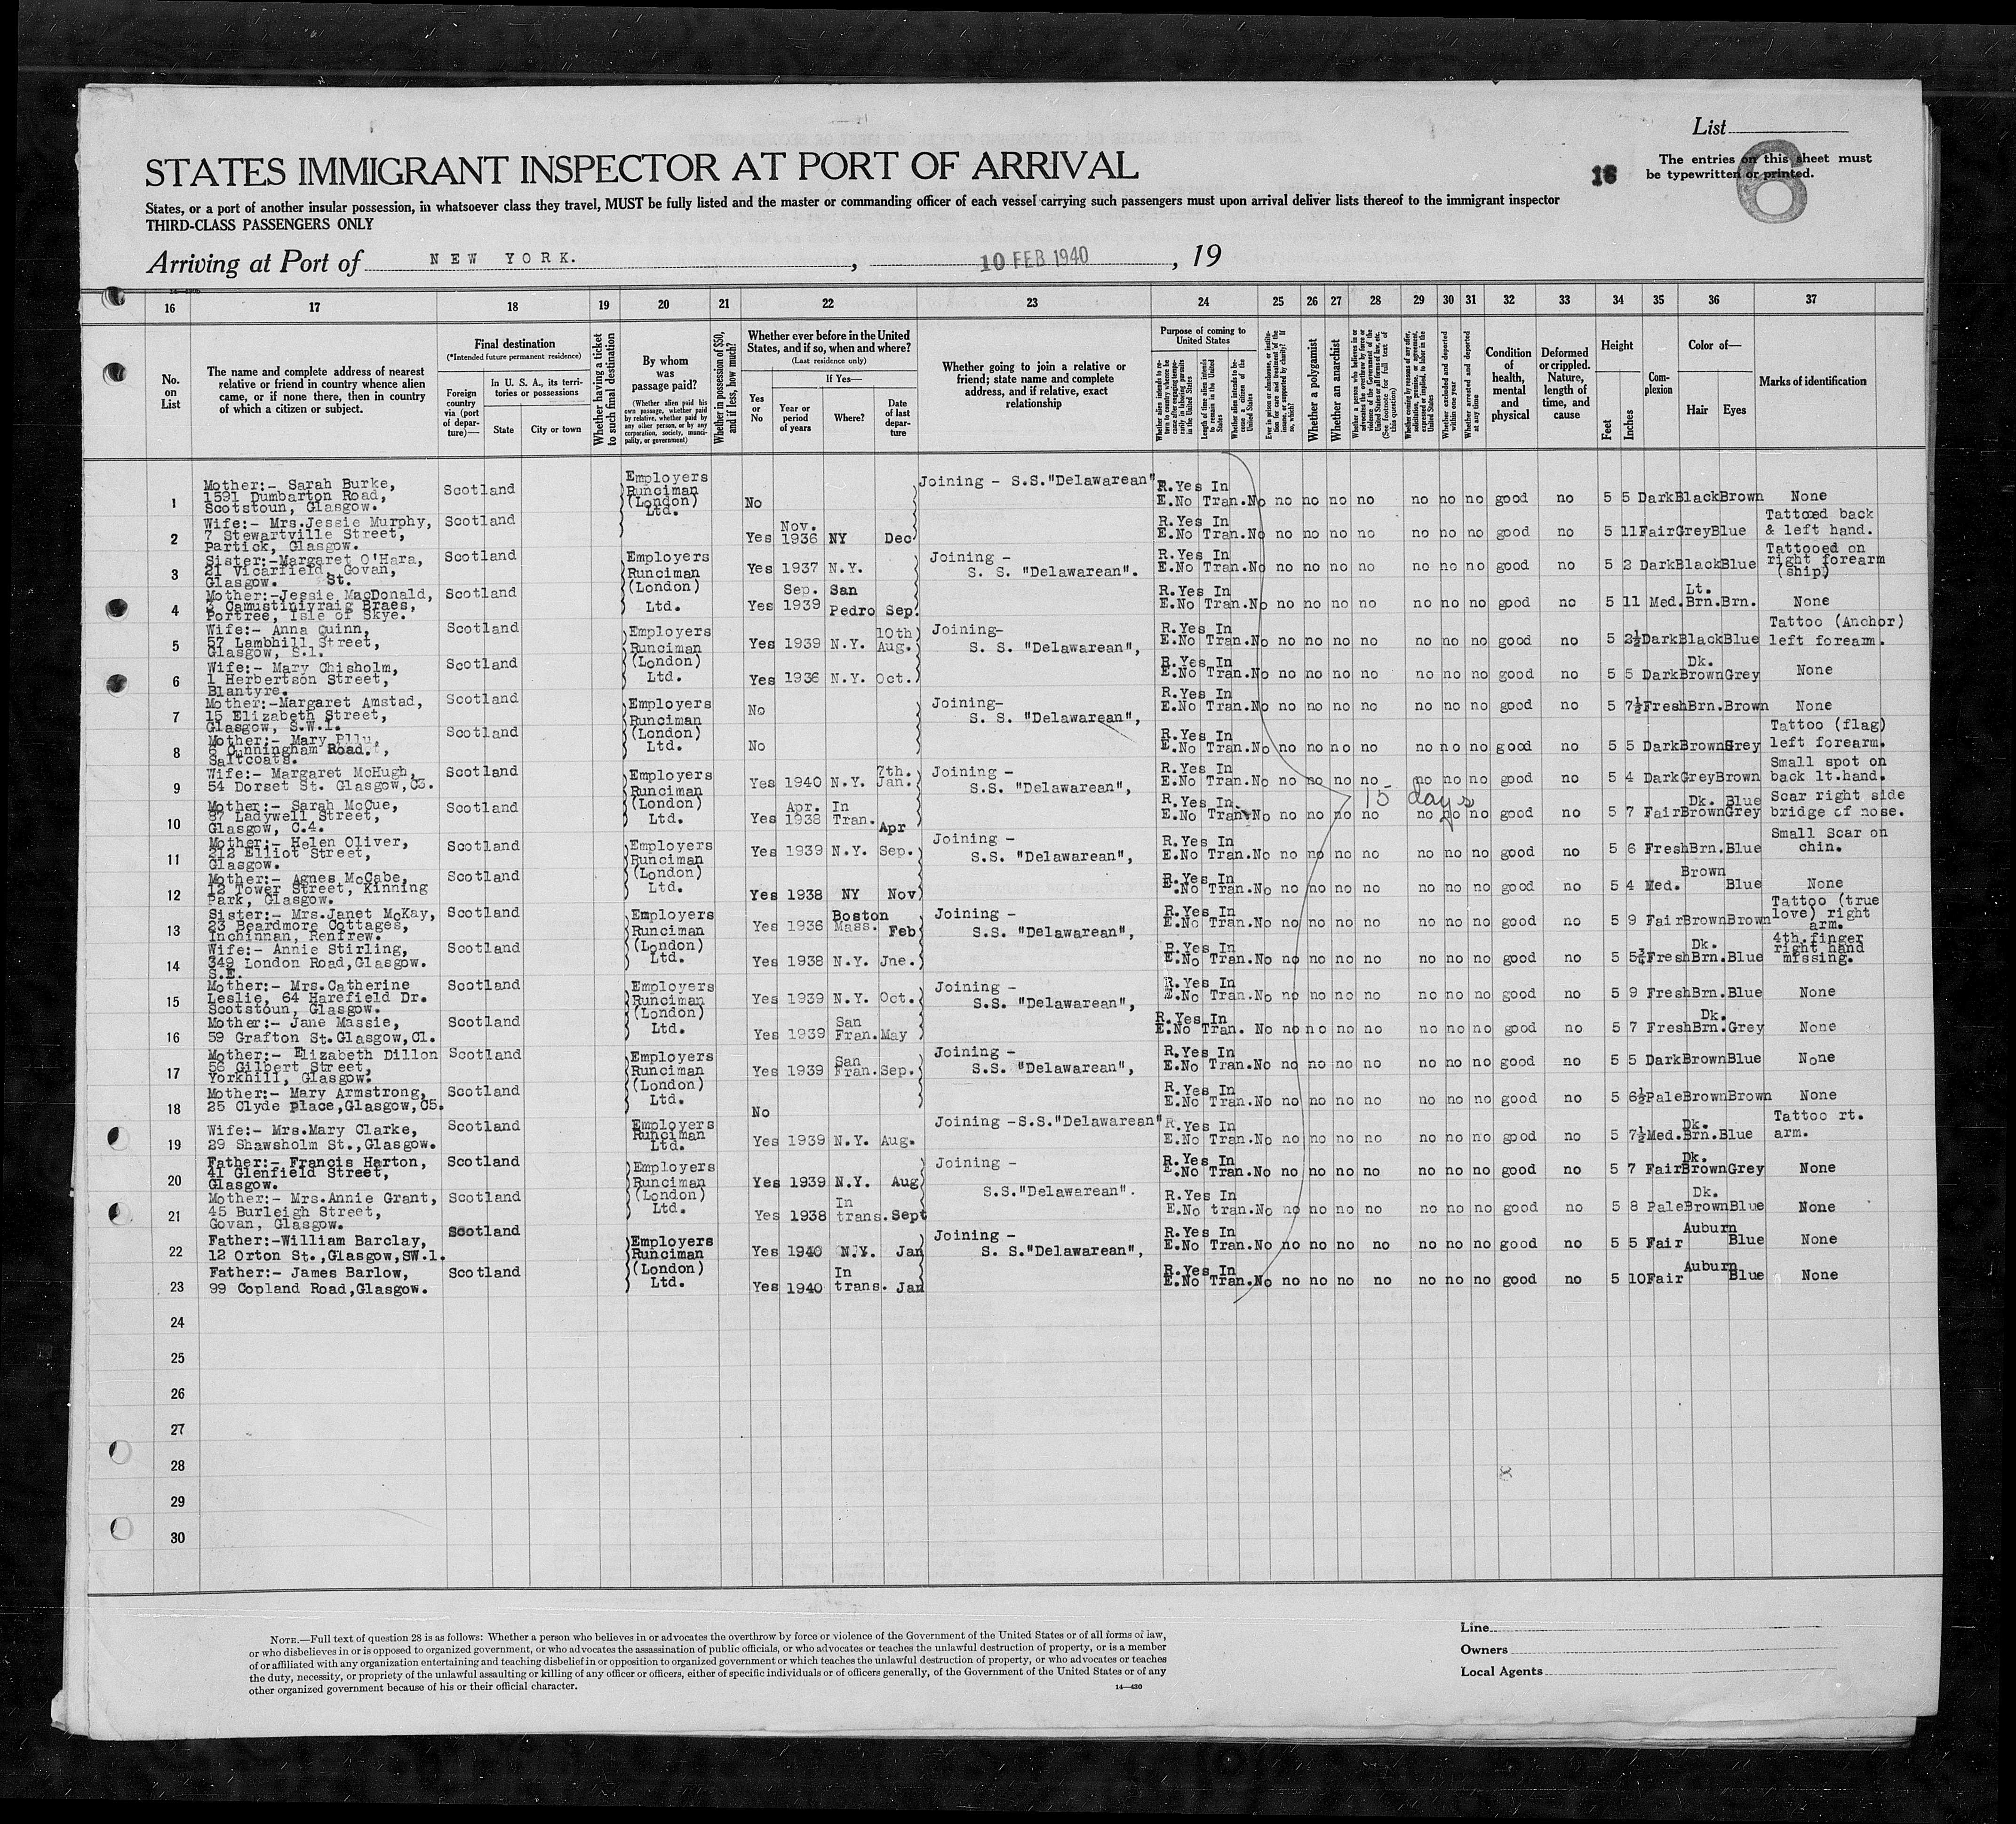 List
STATES IMMIGRANT INSPECTOR AT PORT OF ARRIVAL
16
6
The entries on this sheet must
be typewritten or printed.
States, or a port of another insular possession, in whatsoever class they travel, MUST be fully listed and the master or commanding officer of each vessel carrying such passengers must upon arrival deliver lists thereof to the immigrant inspector
THIRD-CLASS PASSENGERS ONLY
Arriving at Port of NEW YORK. , 10 FEB 1940 , 19
16 17 18 19 20 21 22 23 24 25 26 27 28 29 30 31 32 33 34 35 36 37
No. on List
The name and complete address of nearest relative or friend in country whence alien came, or if none there, then in country of which a citizen or subject.
Final destination
(*Intended future permanent residence)
Foreign country via (port of departure)—
In U. S. A., its territories or possessions
State
City or town
Whether having a ticket to such final destination
By whom was passage paid?
(Whether alien paid his own passage, whether paid by relative, whether paid by any other person, or by any corporation, society, municipality, or government)
Whether in possession of $50, and if less, how much?
Whether ever before in the United States, and if so, when and where?
(Last residence only)
Yes or No
If Yes—
Year or period of years
Where?
Date of last departure
Whether going to join a relative or friend; state name and complete address, and if relative, exact relationship
Purpose of coming to United States
Whether alien intends to return to country whence he came after engaging temporarily in laboring pursuits in the United States
Length of time alien intends to remain in the United States
Whether alien intends to become a citizen of the United States
Ever in prison or almshouse, or institution for care and treatment of the insane, or supported by charity? If so, which?
Whether a polygamist
Whether an anarchist
Whether a person who believes in or advocates the overthrow by force or violence of the Government of the United States or all forms of law, etc. (See footnote for full text of this question)
Whether coming by reasons of any offer, solicitation, promise, or agreement, expressed or implied, to labor in the United States
Whether excluded and deported within one year
Whether arrested and deported at any time
Condition of health, mental and physical
Deformed or crippled. Nature, length of time, and cause
Height
Feet
Inches
Complexion
Color of—
Hair
Eyes
Marks of identification
1 Mother:- Sarah Burke, 1591 Dumbarton Road, Scotstoun, Glasgow. Scotland Employers Runciman (London) Ltd. No Joining - S.S."Delawarean" R.Yes In E.No Tran.No no no no no no no no good no 5 5 Dark Black Brown None
2 Wife:- Mrs.Jessie Murphy, 7 Stewartville Street, Partick, Glasgow. Scotland Yes Nov. 1936 NY Dec R.Yes In E.No Tran.No no no no no no no no good no 5 11 Fair Grey Blue Tattooed back & left hand.
3 Sister:-Margaret O'Hara, 21 Vicarfield, Govan, Glasgow. St. Scotland Employers Runciman (London) Ltd. Yes 1937 N.Y. Joining - S. S. "Delawarean". R.Yes In E.No Tran.No no no no no no no no good no 5 2 Dark Black Blue Tattooed on right forearm (ship)
4 Mother:-Jessie MacDonald, 3 Camustiniyraig Braes, Portree, Isle of Skye. Scotland Yes Sep. 1939 San Pedro Sep. R.Yes In E.No Tran.No no no no no no no no good no 5 11 Med. Lt. Brn. Brn. None
5 Wife:- Anna Quinn, 57 Lambhill Street, Glasgow, S.1. Scotland Employers Runciman (London) Ltd. Yes 1939 N.Y. 10th Aug. Joining- S. S. "Delawarean", R.Yes In E.No Tran.No no no no no no no no good no 5 2½ Dark Black Blue Tattoo (Anchor) left forearm.
6 Wife:- Mary Chisholm, 1 Herbertson Street, Blantyre. Scotland Yes 1936 N.Y. Oct. R.Yes In E.No Tran.No no no no no no no no good no 5 5 Dark Dk. Brown Grey None
7 Mother:-Margaret Amstad, 15 Elizabeth Street, Glasgow, S.W.1. Scotland Employers Runciman (London) Ltd. No Joining- S. S. "Delawarean", R.Yes In E.No Tran.No no no no no no no no good no 5 7½ Fresh Brn. Brown None
8 Mother:- Mary 6 Cunningham Road., Saltcoats. Scotland No R.Yes In E.No Tran.No no no no no no no no good no 5 5 Dark Brown Grey Tattoo (flag) left forearm.
9 Wife:- Margaret McHugh, 54 Dorset St. Glasgow,C3. Scotland Employers Runciman (London) Ltd. Yes 1940 N.Y. 7th. Jan. Joining - S.S. "Delawarean", R.Yes In E.No Tran.No no no no no no no no good no 5 4 Dark Grey Brown Small spot on back lt.hand.
15 days
10 Mother:- Sarah McCue, 87 Ladywell Street, Glasgow, C.4. Scotland Yes Apr. 1938 In Tran. Apr R.Yes In E.No Tran.No no no no no no no no good no 5 7 Fair Dk. Brown Blue Grey Scar right side bridge of nose.
11 Mother:- Helen Oliver, 212 Elliot Street, Glasgow. Scotland Employers Runciman (London) Ltd. Yes 1939 N.Y. Sep. Joining - S.S. "Delawarean", R.Yes In E.No Tran.No no no no no no no no good no 5 6 Fresh Brn. Blue Small Scar on chin.
12 Mother:- Agnes McCabe, 12 Tower Street, Kinning Park, Glasgow. Scotland Yes 1938 NY Nov R.Yes In E.No Tran.No no no no no no no no good no 5 4 Med. Brown Blue None
13 Sister:- Mrs.Janet McKay, 23 Beardmore Cottages, Inchinnan, Renfrew. Scotland Employers Runciman (London) Ltd. Yes 1936 Boston Mass. Feb Joining - S.S. "Delawarean", R.Yes In E.No Tran.No no no no no no no no good no 5 9 Fair Brown Brown Tattoo (true love) right arm.
14 Wife:- Annie Stirling, 349 London Road,Glasgow. S.E. Scotland Yes 1938 N.Y. Jne. R.Yes In E.No Tran.No no no no no no no no good no 5 5¾ Fresh Dk. Brn. Blue 4th.finger right hand missing.
15 Mother:- Mrs.Catherine Leslie, 64 Harefield Dr. Scotstoun, Glasgow. Scotland Employers Runciman (London) Ltd. Yes 1939 N.Y. Oct. Joining - S.S. "Delawarean", R.Yes In E.No Tran.No no no no no no no no good no 5 9 Fresh Brn. Blue None
16 Mother:- Jane Massie, 59 Grafton St.Glasgow,C1. Scotland Yes 1939 San Fran. May R.Yes In E.No Tran. No no no no no no no no good no 5 7 Fresh Dk. Brn. Grey None
17 Mother:- Elizabeth Dillon 56 Gilbert Street, Yorkhill, Glasgow. Scotland Employers Runciman (London) Ltd. Yes 1939 San Fran. Sep. Joining - S.S. "Delawarean", R.Yes In E.No Tran.No no no no no no no no good no 5 5 Dark Brown Blue None
18 Mother:- Mary Armstrong, 25 Clyde place,Glasgow,C5. Scotland No R.Yes In E.No Tran.No no no no no no no no good no 5 6½ Pale Brown Brown None
19 Wife:- Mrs.Mary Clarke, 29 Shawsholm St.,Glasgow. Scotland Employers Runciman Ltd. Yes 1939 N.Y. Aug. Joining -S.S."Delawarean" R.Yes In E.No Tran.No no no no no no no no good no 5 7½ Med. Dk. Brn. Blue Tattoo rt. arm.
20 Father:- Francis Harton, 41 Glenfield Street, Glasgow. Scotland Employers Runciman (London) Ltd. Yes 1939 N.Y. Aug Joining - S.S."Delawarean". R.Yes In E.No Tran.No no no no no no no no good no 5 7 Fair Dk. Brown Grey None
21 Mother:- Mrs.Annie Grant, 45 Burleigh Street, Govan, Glasgow. Scotland Yes 1938 In trans. Sept R.Yes In E.No tran.No no no no no no no no good no 5 8 Pale Dk. Brown Blue None
22 Father:-William Barclay, 12 Orton St.,Glasgow,SW.1. Scotland Employers Runciman (London) Ltd. Yes 1940 N.Y. Jan Joining - S. S."Delawarean", R.Yes In E.No Tran.No no no no no no no no good no 5 5 Fair Auburn Blue None
23 Father:- James Barlow, 99 Copland Road,Glasgow. Scotland Yes 1940 In trans. Jan R.Yes In E.No Tran.No no no no no no no no good no 5 10 Fair Auburn Blue None
24
25
26
27
28
29
30
NOTE.—Full text of question 28 is as follows: Whether a person who believes in or advocates the overthrow by force or violence of the Government of the United States or of all forms of law,
or who disbelieves in or is opposed to organized government, or who advocates the assassination of public officials, or who advocates or teaches the unlawful destruction of property, or is a member
of or affiliated with any organization entertaining and teaching disbelief in or opposition to organized government or which teaches the unlawful destruction of property, or who advocates or teaches
the duty, necessity, or propriety of the unlawful assaulting or killing of any officer or officers, either of specific individuals or of officers generally, of the Government of the United States or of any
other organized government because of his or their official character.
14—430
Line
Owners
Local Agents